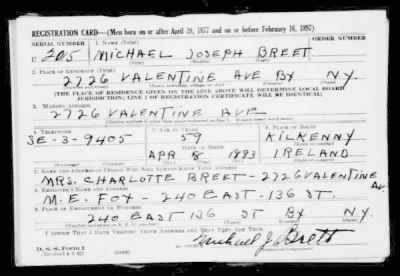 REGISTRATION CARD—(Men born on or after April 28, 1877 and on or before February 16, 1897)
SERIAL NUMBER 1. NAME (Print) ORDER NUMBER
U 205 MICHAEL JOSEPH BREET
(First) (Middle) (Last)
2. PLACE OF RESIDENCE (Print)
2726 VALENTINE AVE BX N.Y.
(THE PLACE OF RESIDENCE GIVEN ON THE LINE ABOVE WILL DETERMINE LOCAL BOARD
JURISDICTION; LINE 2 OF REGISTRATION CERTIFICATE WILL BE IDENTICAL)
3. MAILING ADDRESS
2726 VALENTINE AVE
4. TELEPHONE 5. AGE IN YEARS 6. PLACE OF BIRTH
SE-3-9405 59 KILKENNY
DATE OF BIRTH
APR 8 1883 IRELAND
7. NAME AND ADDRESS OF PERSON WHO WILL ALWAYS KNOW YOUR ADDRESS
MRS. CHARLOTTE BREET - 2726 VALENTINE AV.
8. EMPLOYER'S NAME AND ADDRESS
M. E. FOX - 240 EAST - 136 ST.
9. PLACE OF EMPLOYMENT OR BUSINESS
240 EAST 136 ST BX N.Y.
I AFFIRM THAT I HAVE VERIFIED ABOVE ANSWERS AND THAT THEY ARE TRUE.
D. S. S. Form 1
Michael J. Brett